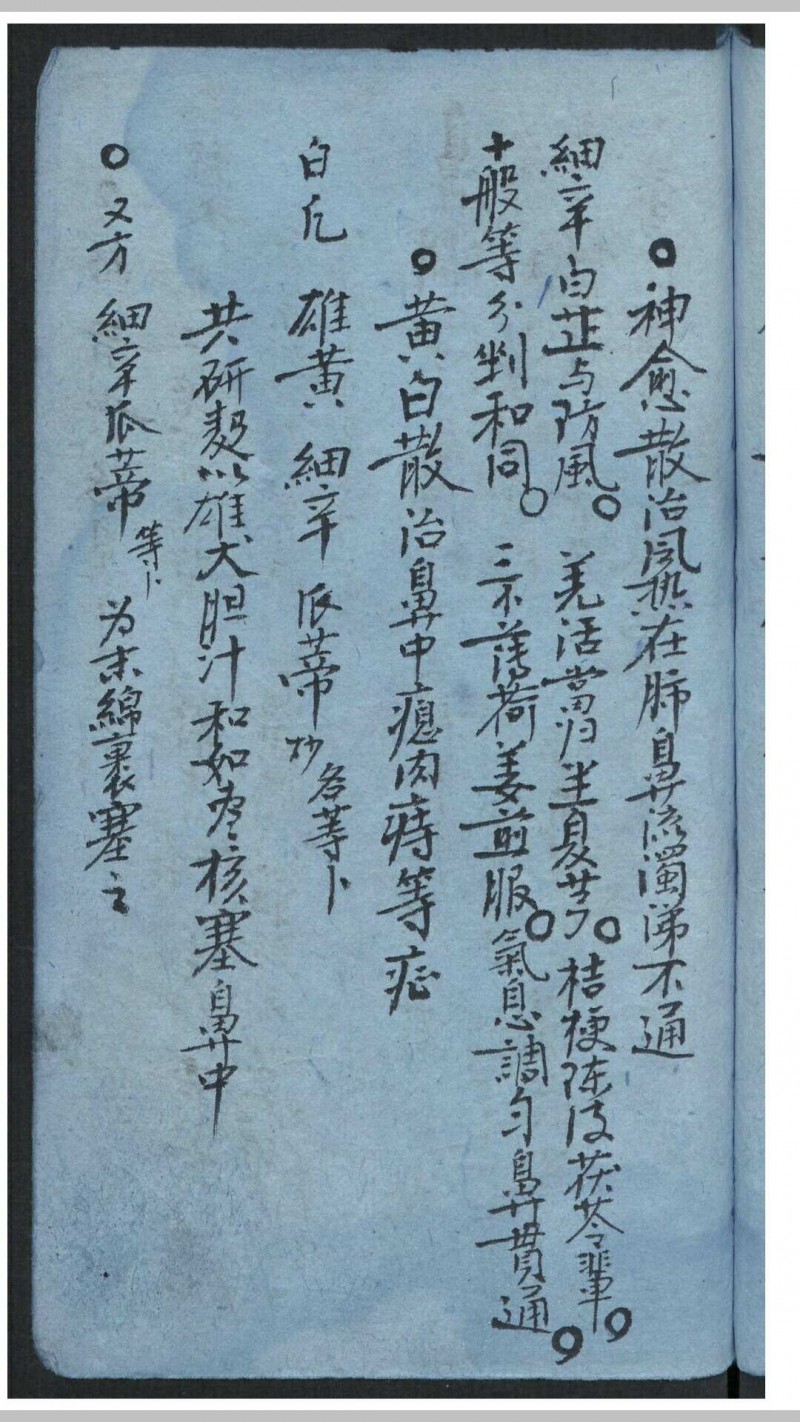 ○神愈散治風热在肺鼻流濁涕不通
細辛白芷与防風○羌活當归半夏芎○桔梗陈皮茯苓輩○
十般等分剉和同○三不薄荷姜煎服○氣息調匀鼻貫通○
○黄白散治鼻中瘜肉痔等症
白凡 雄黄 細辛 瓜蒂炒 各等卜
共研以雄犬胆汁和如枣核塞鼻中
○又方 細辛瓜蒂等卜为末綿裹塞之